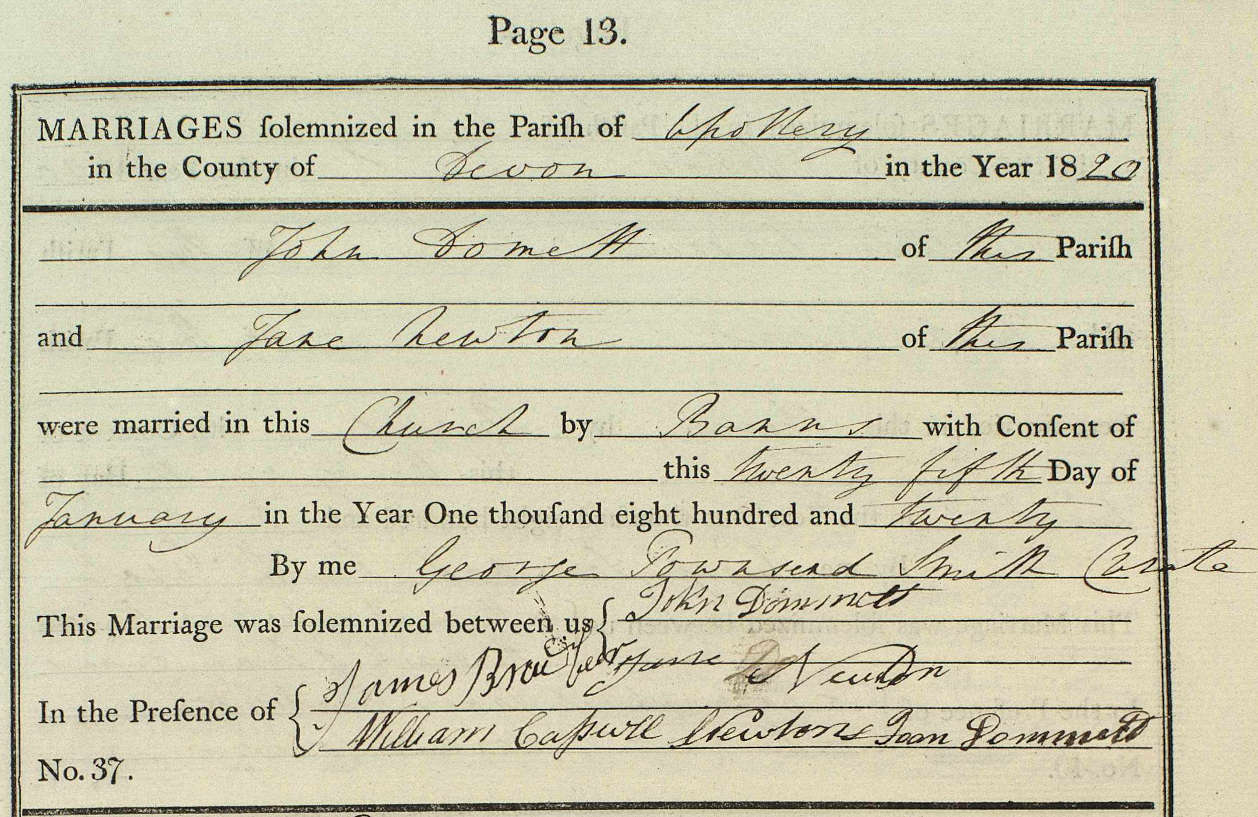 Page 13.
MARRIAGES ſolemnized in the Pariſh of Upottery
in the County of Devon in the Year 1820
John Domett of this Pariſh
and Jane Newton of this Pariſh
were married in this Church by Banns with Conſent of
this twenty fifth Day of
January in the Year One thouſand eight hundred and twenty
By me George Townsend Smith Curate
This Marriage was ſolemnized between us John Dommett
Jane Newton
In the Preſence of James
William Newton Joan Dommett
No. 37.